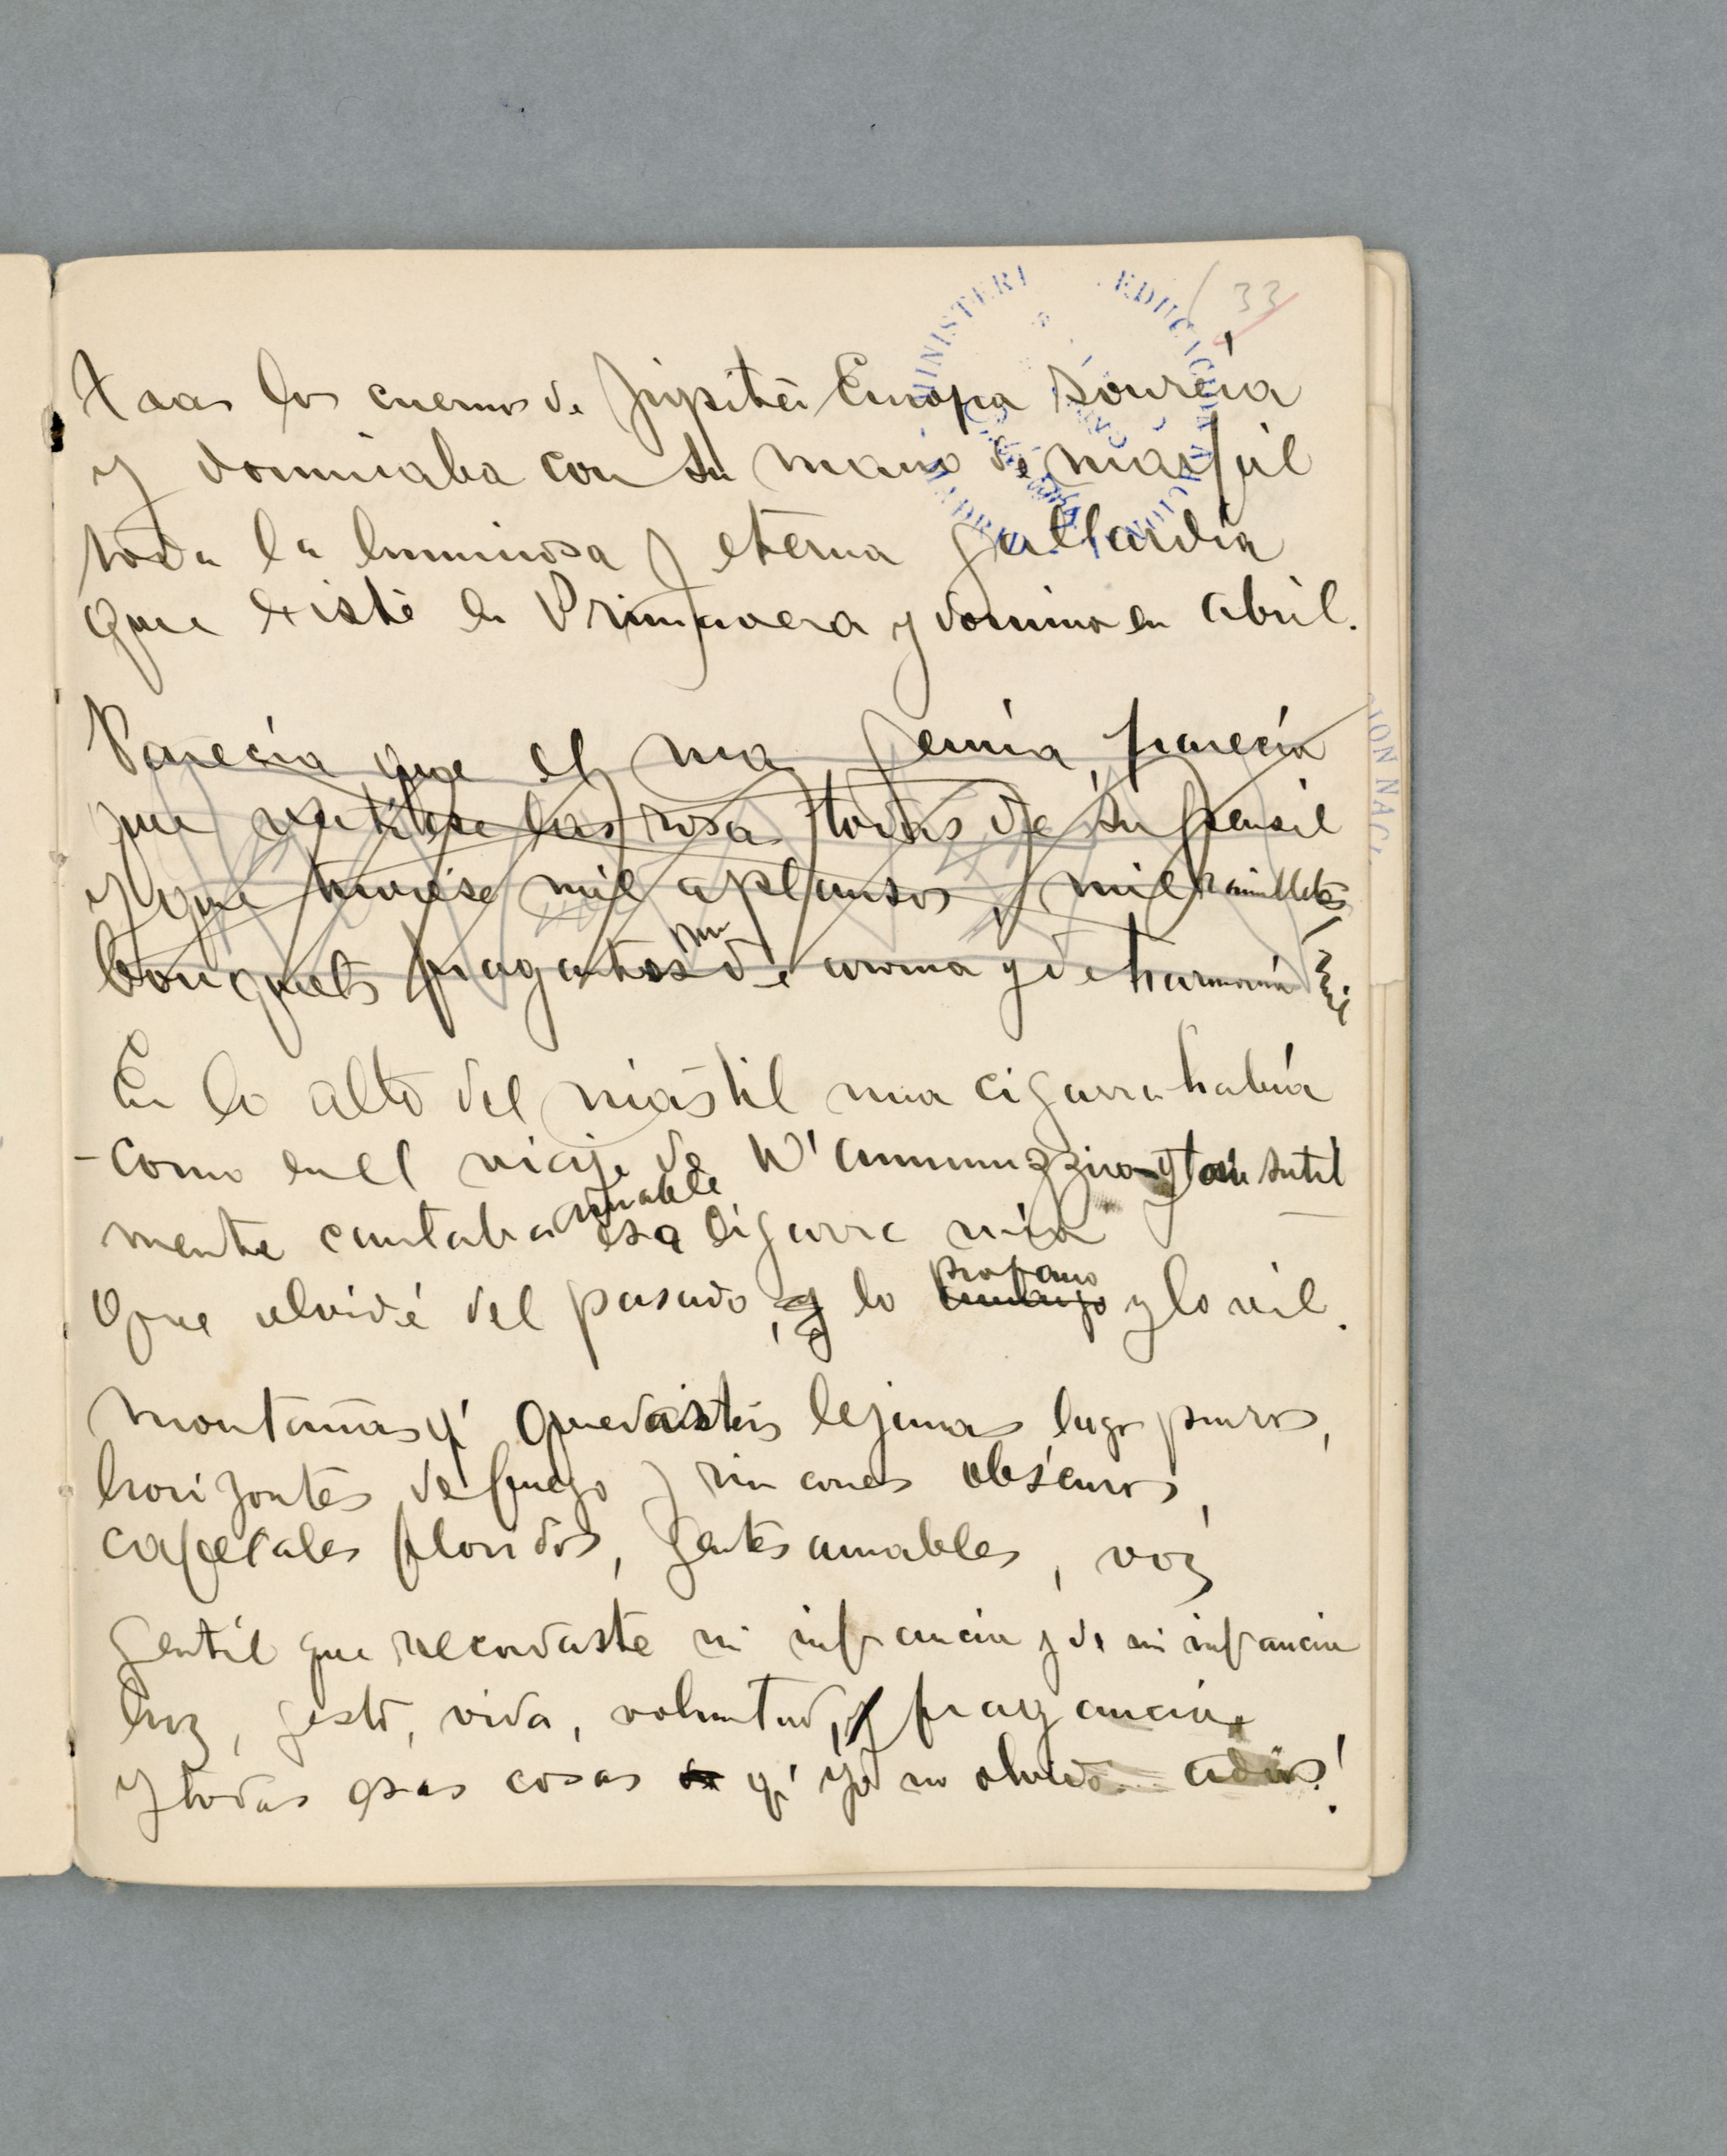 33
Tras los cuernos de Júpiter Europa sonreía
y dominaba con su mano de marfil
toda la luminosa y eterna gallardía
que existe en Primavera y domina en abril.
Parecía que el mar gemía, parecía
que vertiese las rosas todas de su pensil
y que tuviese mil aplausos, y mil ramilletes
bouquets fragantes de aroma y de harmonía
En lo alto del mástil una cigarra había
-como en el viaje de D'Annunnzzio- y tan sutil
mente cantaba amable esa cigarra mía
que olvidé del pasado, lo profano y lo vil.
Montañas q' quedasteis lejanas, lagos puros,
horizontes de fuego y rincones obscuros,
cafetales floridos, gentes amables, voz
gentil que recordaste mi infancia y de mi infancia
luz, gesto, vida, voluntad, y fragancia,
y todas esas cosas q' yo no olvido... adios!